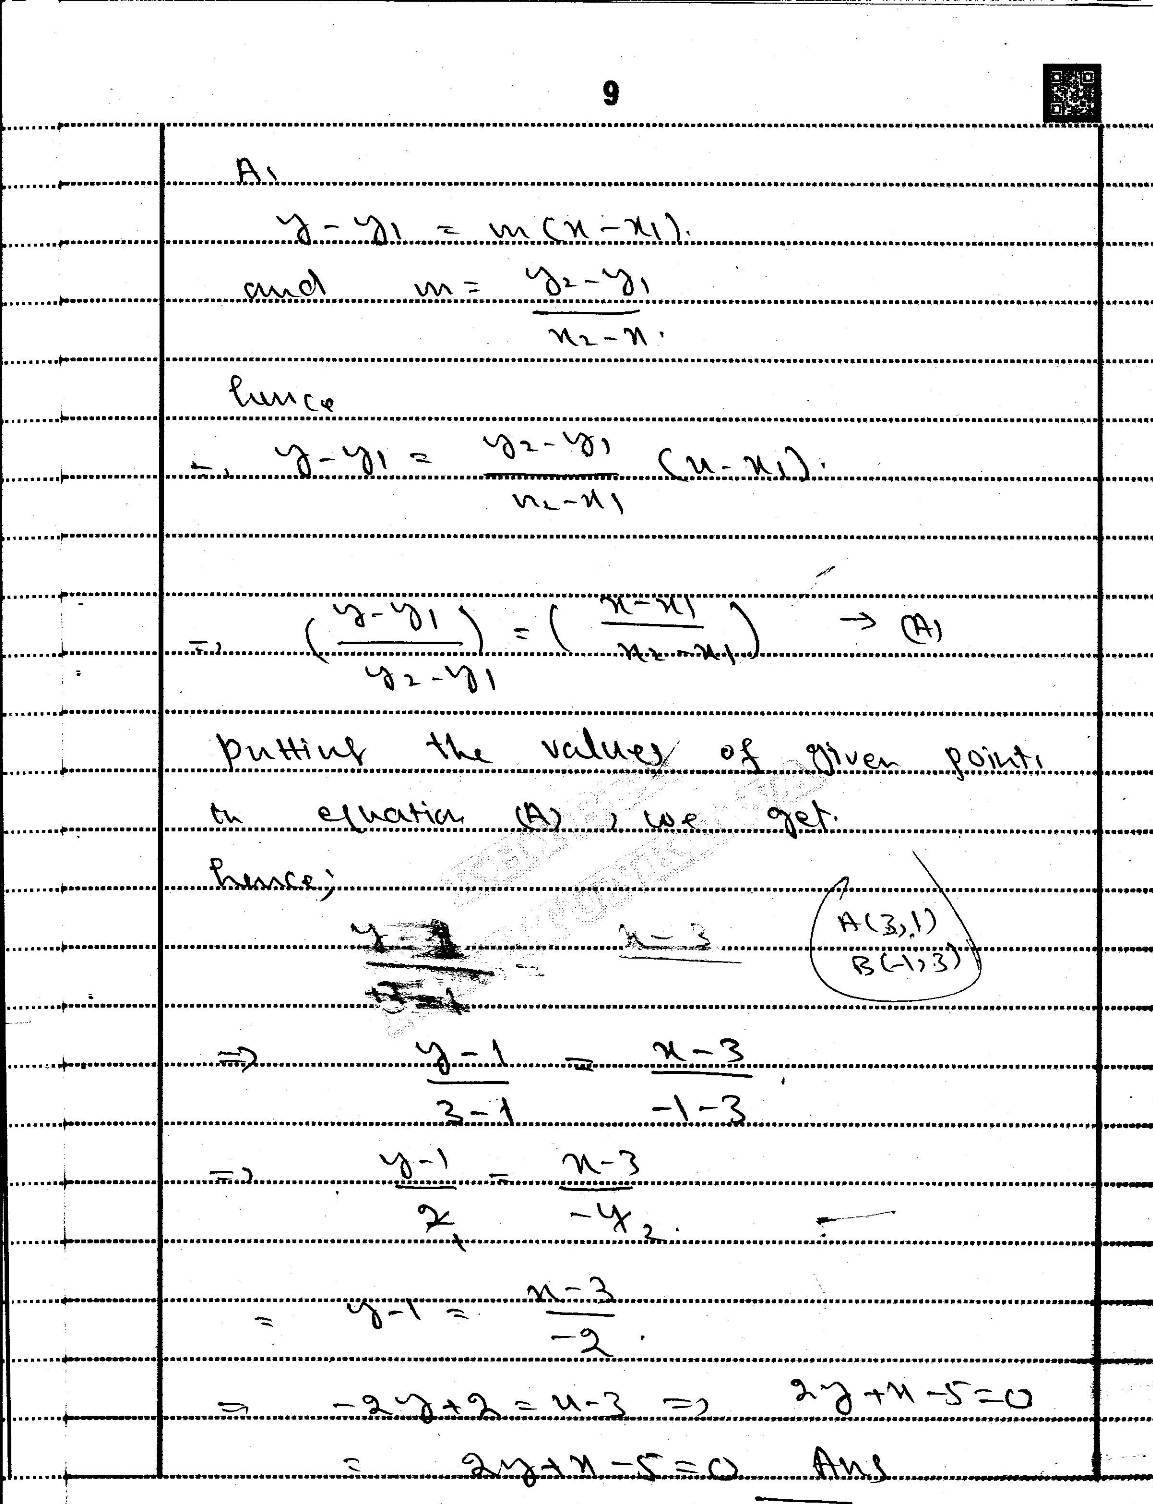 9
A,
y - y1 = m(x - x1).
and m = y2 - y1 / x2 - x.
hence
∴, y - y1 = y2 - y1 / x2 - x1 (x - x1).
=> (y - y1 / y2 - y1) = (x - x1 / x2 - x1) → (A)
putting the values of given points
in equation (A), we get.
hence;
x - 3
A(3,1)
B(-1,3)
=> y - 1 / 3 - 1 = x - 3 / -1 - 3
=> y - 1 / 2 1 = x - 3 / -4 2.
= y - 1 = x - 3 / -2.
=> -2y + 2 = x - 3 => 2y + x - 5 = 0
= 2y + x - 5 = 0 Ans